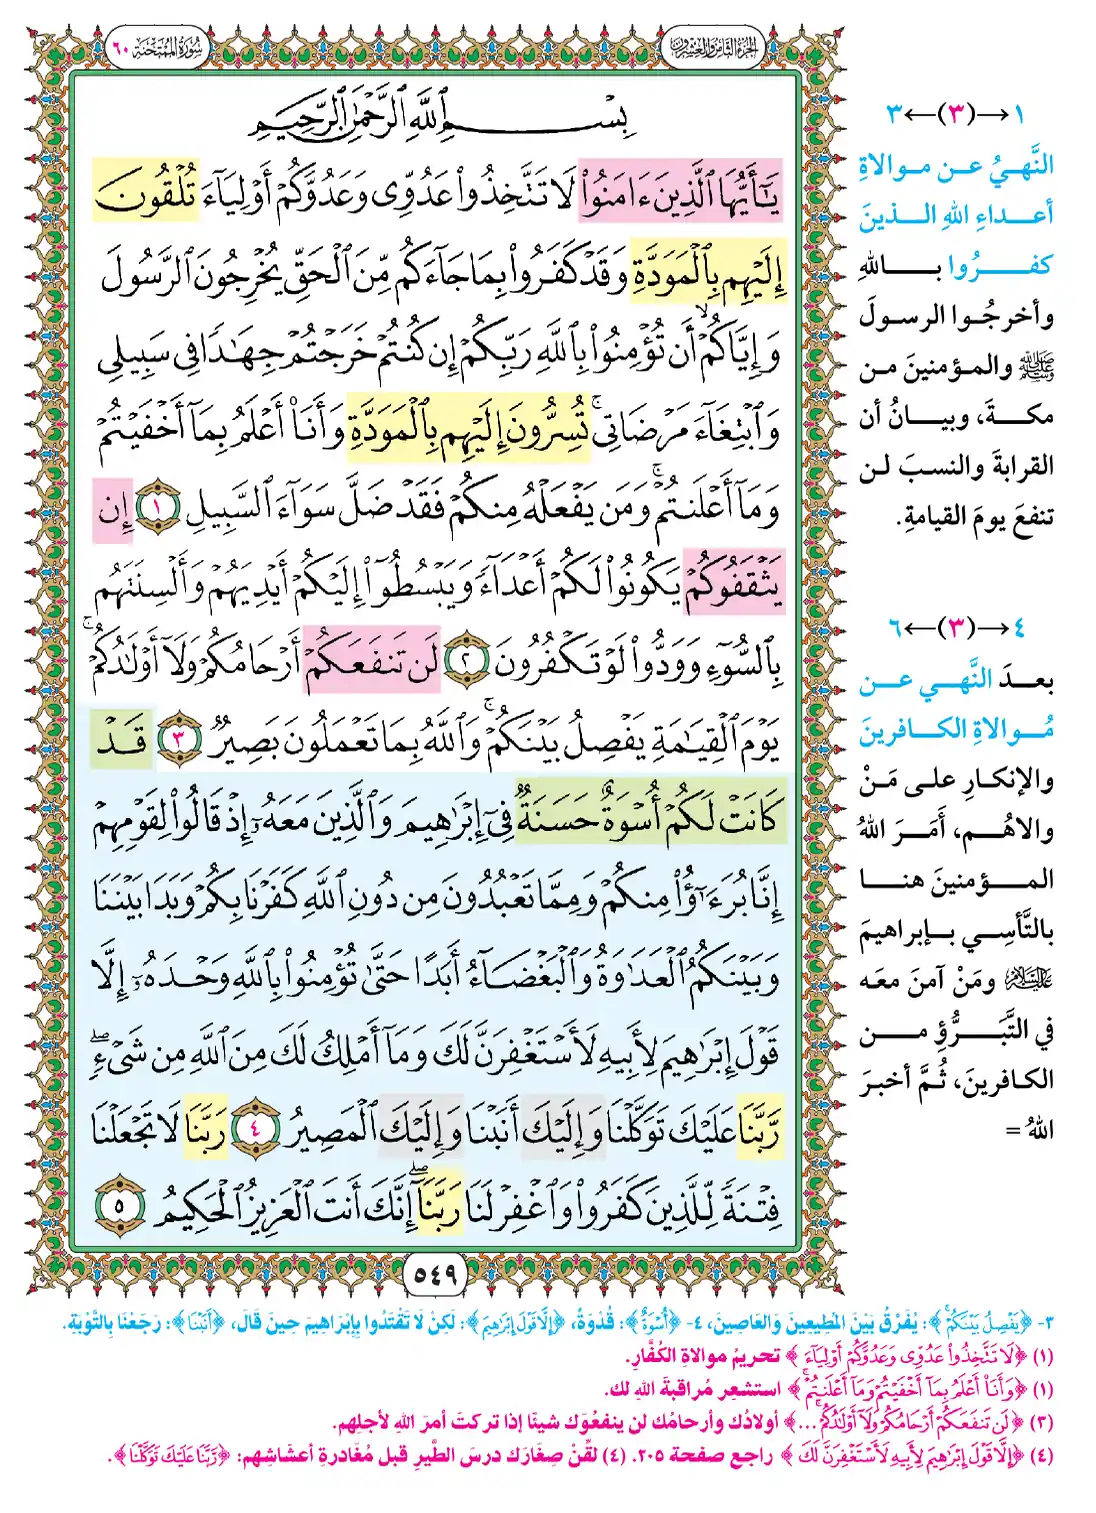 سُورَةُ المُمْتَحنَة ٦٠
الجزءُ الثامن والعشرون
بِسْمِ ٱللَّهِ ٱلرَّحْمَٰنِ ٱلرَّحِيمِ
يَٰٓأَيُّهَا ٱلَّذِينَ ءَامَنُوا۟ لَا تَتَّخِذُوا۟ عَدُوِّى وَعَدُوَّكُمْ أَوْلِيَآءَ تُلْقُونَ
إِلَيْهِم بِٱلْمَوَدَّةِ وَقَدْ كَفَرُوا۟ بِمَا جَآءَكُم مِّنَ ٱلْحَقِّ يُخْرِجُونَ ٱلرَّسُولَ
وَإِيَّاكُمْ ۙ أَن تُؤْمِنُوا۟ بِٱللَّهِ رَبِّكُمْ إِن كُنتُمْ خَرَجْتُمْ جِهَٰدًا فِى سَبِيلِى
وَٱبْتِغَآءَ مَرْضَاتِى ۚ تُسِرُّونَ إِلَيْهِم بِٱلْمَوَدَّةِ وَأَنَا۠ أَعْلَمُ بِمَآ أَخْفَيْتُمْ
وَمَآ أَعْلَنتُمْ ۚ وَمَن يَفْعَلْهُ مِنكُمْ فَقَدْ ضَلَّ سَوَآءَ ٱلسَّبِيلِ ١ إِن
يَثْقَفُوكُمْ يَكُونُوا۟ لَكُمْ أَعْدَآءً وَيَبْسُطُوٓا۟ إِلَيْكُمْ أَيْدِيَهُمْ وَأَلْسِنَتَهُم
بِٱلسُّوٓءِ وَوَدُّوا۟ لَوْ تَكْفُرُونَ ٢ لَن تَنفَعَكُمْ أَرْحَامُكُمْ وَلَآ أَوْلَٰدُكُمْ ۚ
يَوْمَ ٱلْقِيَٰمَةِ يَفْصِلُ بَيْنَكُمْ ۚ وَٱللَّهُ بِمَا تَعْمَلُونَ بَصِيرٌ ٣ قَدْ
كَانَتْ لَكُمْ أُسْوَةٌ حَسَنَةٌ فِىٓ إِبْرَٰهِيمَ وَٱلَّذِينَ مَعَهُۥٓ إِذْ قَالُوا۟ لِقَوْمِهِمْ
إِنَّا بُرَءَٰٓؤُا۟ مِنكُمْ وَمِمَّا تَعْبُدُونَ مِن دُونِ ٱللَّهِ كَفَرْنَا بِكُمْ وَبَدَا بَيْنَنَا
وَبَيْنَكُمُ ٱلْعَدَٰوَةُ وَٱلْبَغْضَآءُ أَبَدًا حَتَّىٰ تُؤْمِنُوا۟ بِٱللَّهِ وَحْدَهُۥٓ إِلَّا
قَوْلَ إِبْرَٰهِيمَ لِأَبِيهِ لَأَسْتَغْفِرَنَّ لَكَ وَمَآ أَمْلِكُ لَكَ مِنَ ٱللَّهِ مِن شَىْءٍ ۖ
رَّبَّنَا عَلَيْكَ تَوَكَّلْنَا وَإِلَيْكَ أَنَبْنَا وَإِلَيْكَ ٱلْمَصِيرُ ٤ رَبَّنَا لَا تَجْعَلْنَا
فِتْنَةً لِّلَّذِينَ كَفَرُوا۟ وَٱغْفِرْ لَنَا رَبَّنَآ ۖ إِنَّكَ أَنتَ ٱلْعَزِيزُ ٱلْحَكِيمُ ٥
٥٤٩
١→(٣)←٣
النَّهيُ عن موالاةِ
أعداءِ اللهِ الذينَ
كفرُوا باللهِ
وأخرجُوا الرسولَ
ﷺ والمؤمنينَ من
مكةَ، وبيانُ أن
القرابةَ والنسبَ لن
تنفعَ يومَ القيامةِ.
٤→(٣)←٦
بعدَ النَّهي عن
مُوالاةِ الكافرينَ
والإنكارِ على مَنْ
والاهُم، أَمَرَ اللهُ
المؤمنينَ هنا
بالتَّأسِي بإبراهيمَ
عليه السلام ومَنْ آمنَ معه
في التَّبَرُّؤِ من
الكافرينَ، ثُمَّ أخبرَ
اللهُ =
٣- ﴿يَفْصِلُ بَيْنَكُمْ ۚ﴾: يُفَرِّقُ بَيْنَ المُطِيعِينَ وَالعَاصِينَ، ٤- ﴿أُسْوَةٌ﴾: قُدْوَةٌ، ﴿إِلَّا قَوْلَ إِبْرَٰهِيمَ﴾: لَكِنْ لَا تَقْتَدُوا بِإِبْرَاهِيمَ حِينَ قَالَ، ﴿أَنَبْنَا﴾: رَجَعْنَا بِالتَّوْبَةِ.
(١) ﴿لَا تَتَّخِذُوا۟ عَدُوِّى وَعَدُوَّكُمْ أَوْلِيَآءَ﴾ تحريمُ موالاةِ الكُفَّارِ.
(١) ﴿وَأَنَا۠ أَعْلَمُ بِمَآ أَخْفَيْتُمْ وَمَآ أَعْلَنتُمْ ۚ﴾ استشعِر مُراقبةَ اللهِ لك.
(٣) ﴿لَن تَنفَعَكُمْ أَرْحَامُكُمْ وَلَآ أَوْلَٰدُكُمْ ۚ...﴾ أولادُك وأرحامُك لن ينفعُوك شيئًا إذا تركتَ أمرَ اللهِ لأجلِهم.
(٤) ﴿إِلَّا قَوْلَ إِبْرَٰهِيمَ لِأَبِيهِ لَأَسْتَغْفِرَنَّ لَكَ﴾ راجع صفحة ٢٠٥. (٤) لقِّنْ صِغَارَك درسَ الطَّيرِ قبل مُغادرةِ أعشَاشِهم: ﴿رَّبَّنَا عَلَيْكَ تَوَكَّلْنَا﴾.